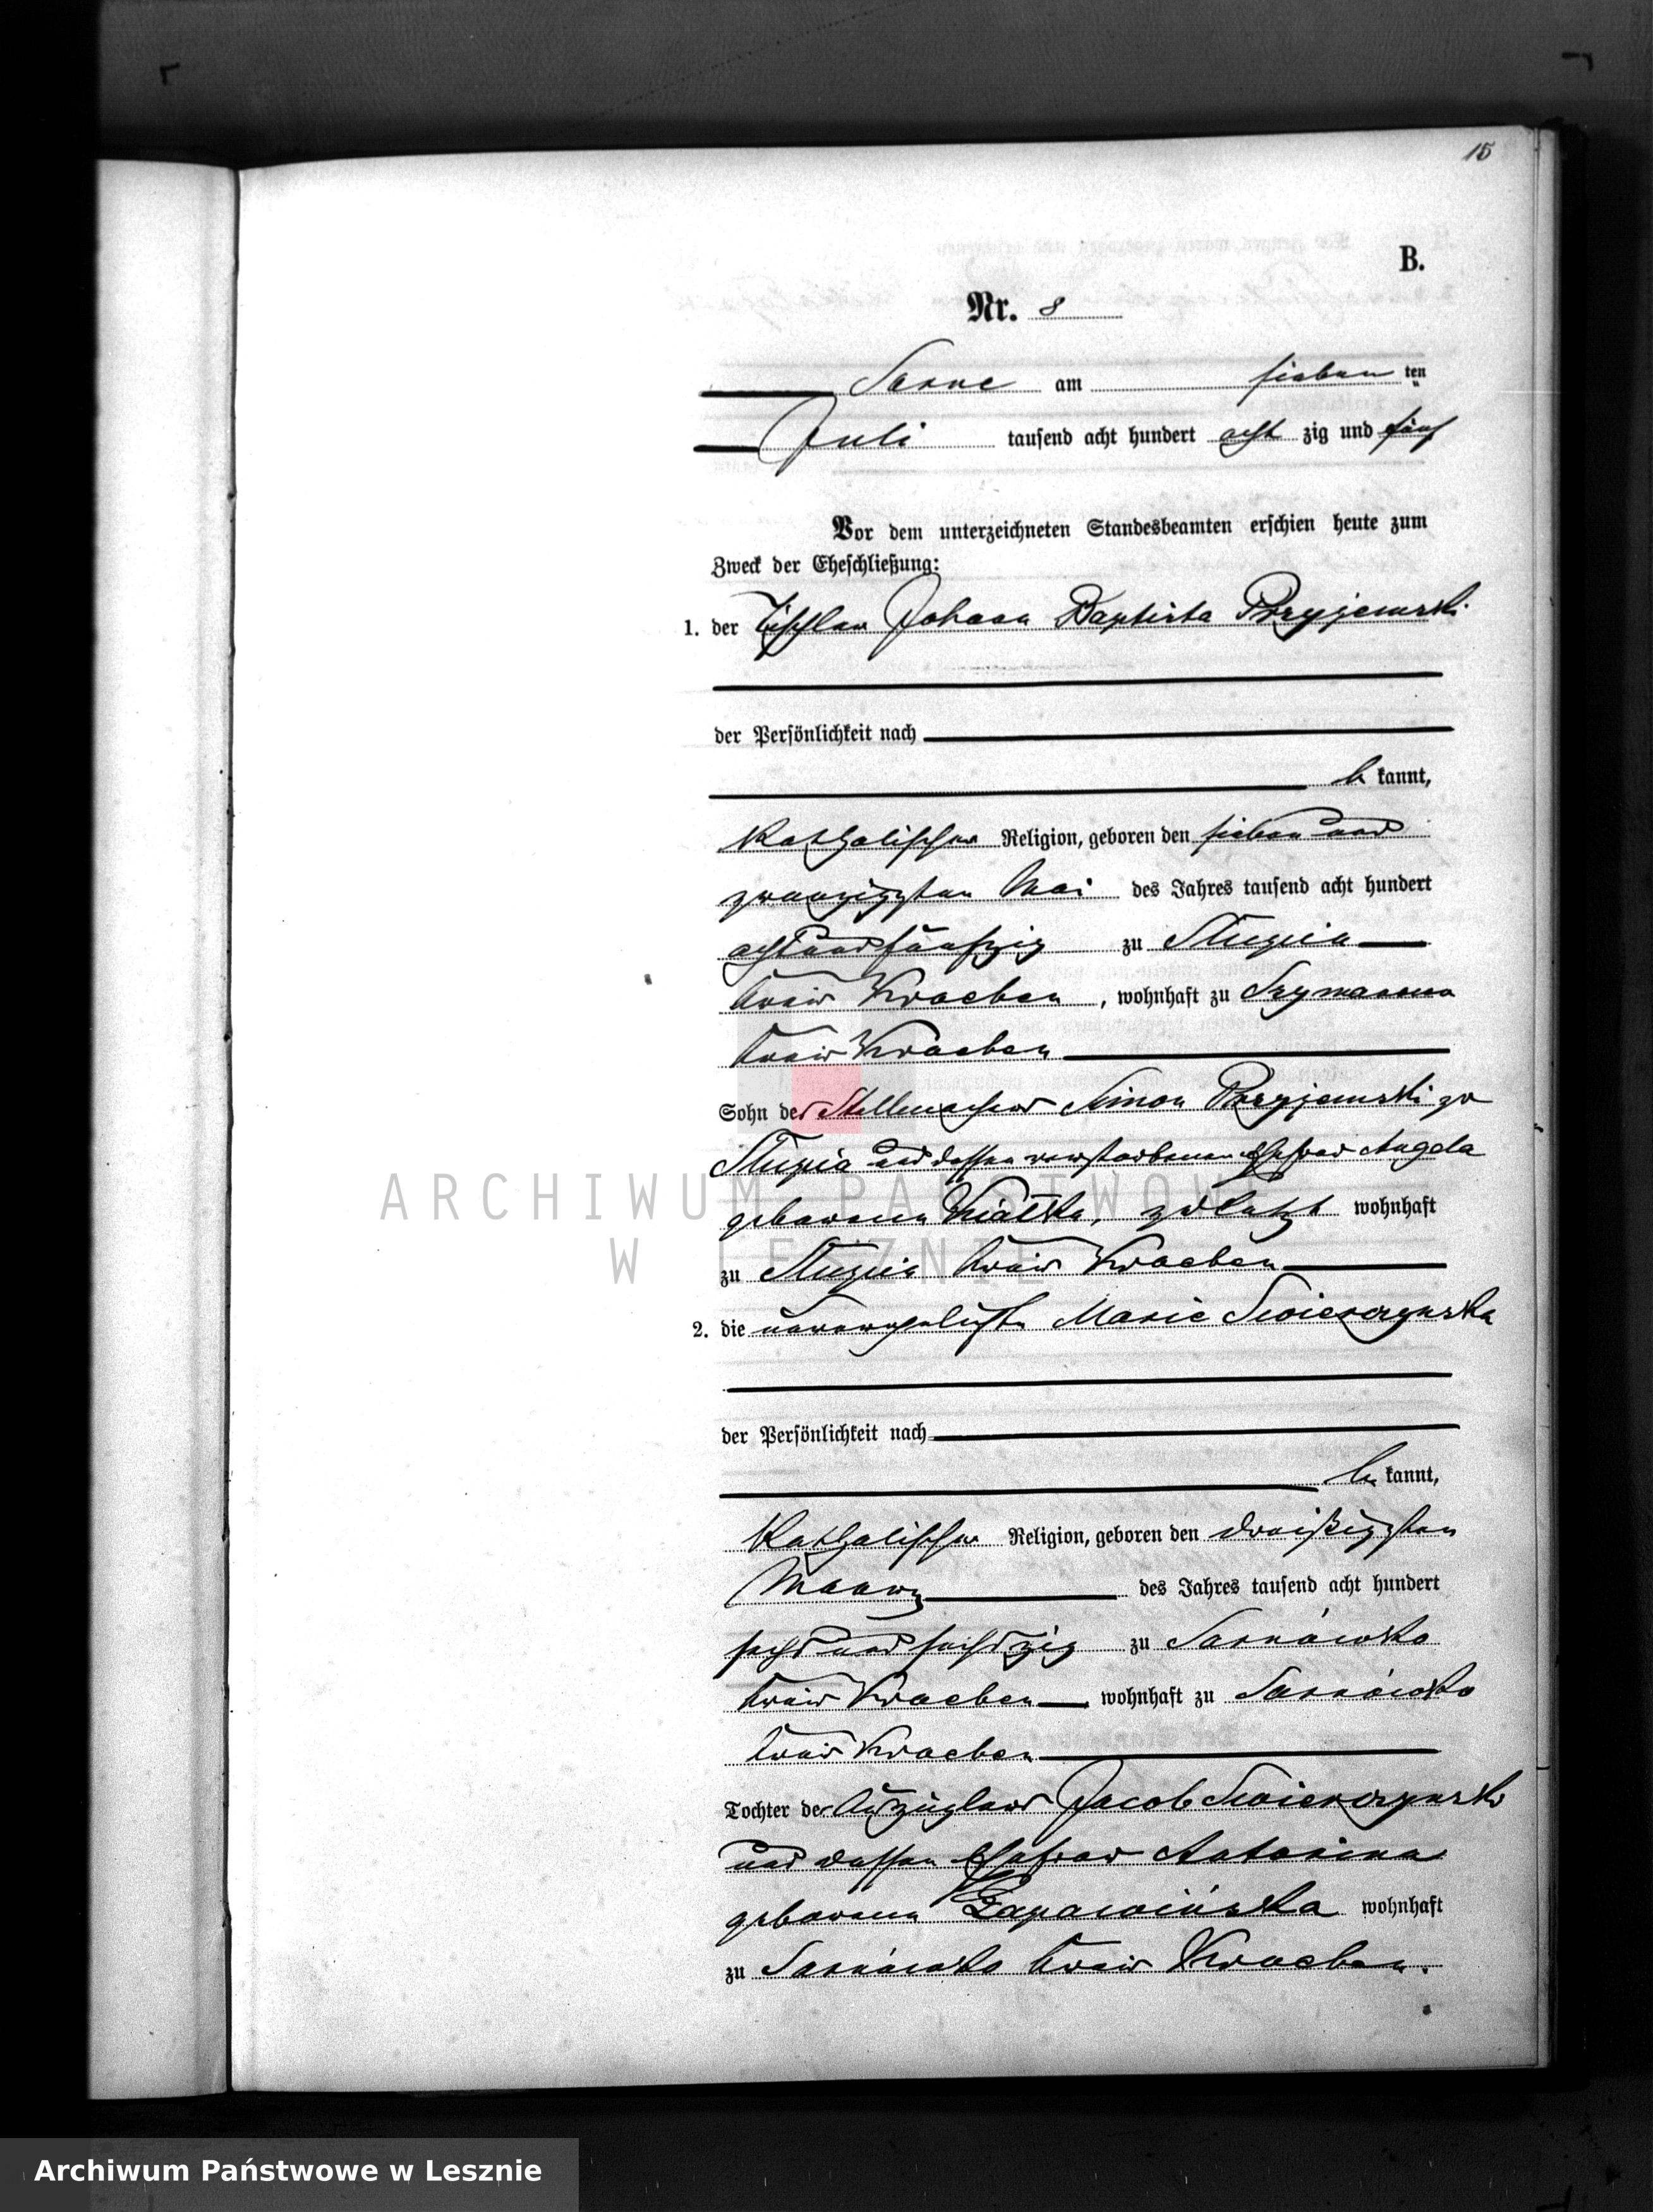 15
B.
Nr. 8
Sarne am sieben ten
Juli tausend acht hundert acht zig und fünf
Vor dem unterzeichneten Standesbeamten erschien heute zum
Zweck der Eheschließung:
1. der Tischler Johann Baptista Przyjemski
der Persönlichkeit nach
be kannt,
katholischer Religion, geboren den sieben und
zwanzigsten Mai des Jahres tausend acht hundert
acht und fünfzig zu Slupia
Kreis Kroeben, wohnhaft zu Szymanowo
Kreis Kroeben
Sohn des Stellmachers Simon Przyjemski zu
Slupia und dessen verstorbenen Ehefrau Angela
geborenen, zuletzt wohnhaft
zu Slupia Kreis Kroeben
2. die unverehelichte Marie Swierczynska
der Persönlichkeit nach
be kannt,
katholischer Religion, geboren den dreißigsten
Maerz des Jahres tausend acht hundert
sechs und sechszig zu Sarnówko
Kreis Kroeben wohnhaft zu Sarnówko
Kreis Kroeben
Tochter des Auszüglers Jacob Swierczynski
und dessen Ehefrau Antonina
geborenen Łapawińska wohnhaft
zu Sarnówko Kreis Kroeben.
ARCHIWUM PAŃSTWOWE
W LESZNIE
Archiwum Państwowe w Lesznie